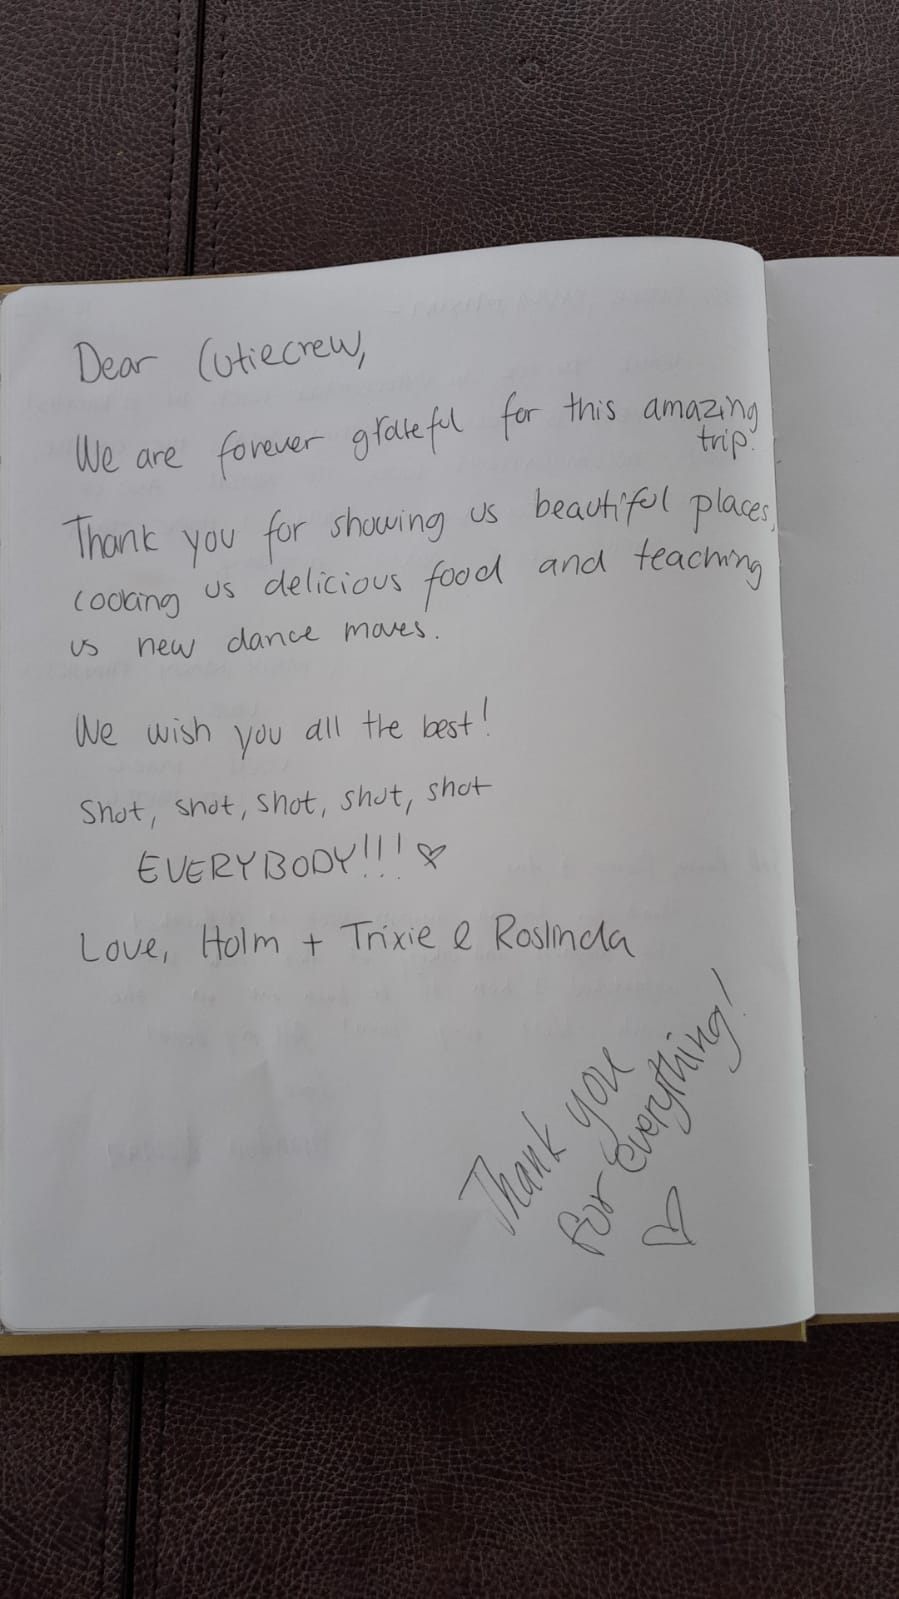 Dear Cutiecrew,
We are forever grateful for this amazing
trip.
Thank you for showing us beautiful places,
cooking us delicious food and teaching
us new dance moves.
We wish you all the best!
Shot, shot, shot, shot, shot
EVERYBODY!!! ♡
Love, Holm + Trixie & Roslinda
Thank you
for everything!
♡